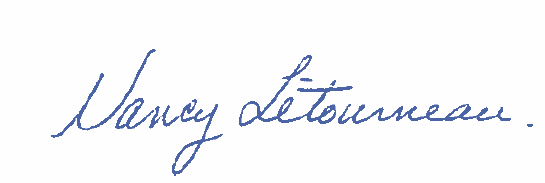 Nancy Létourneau.